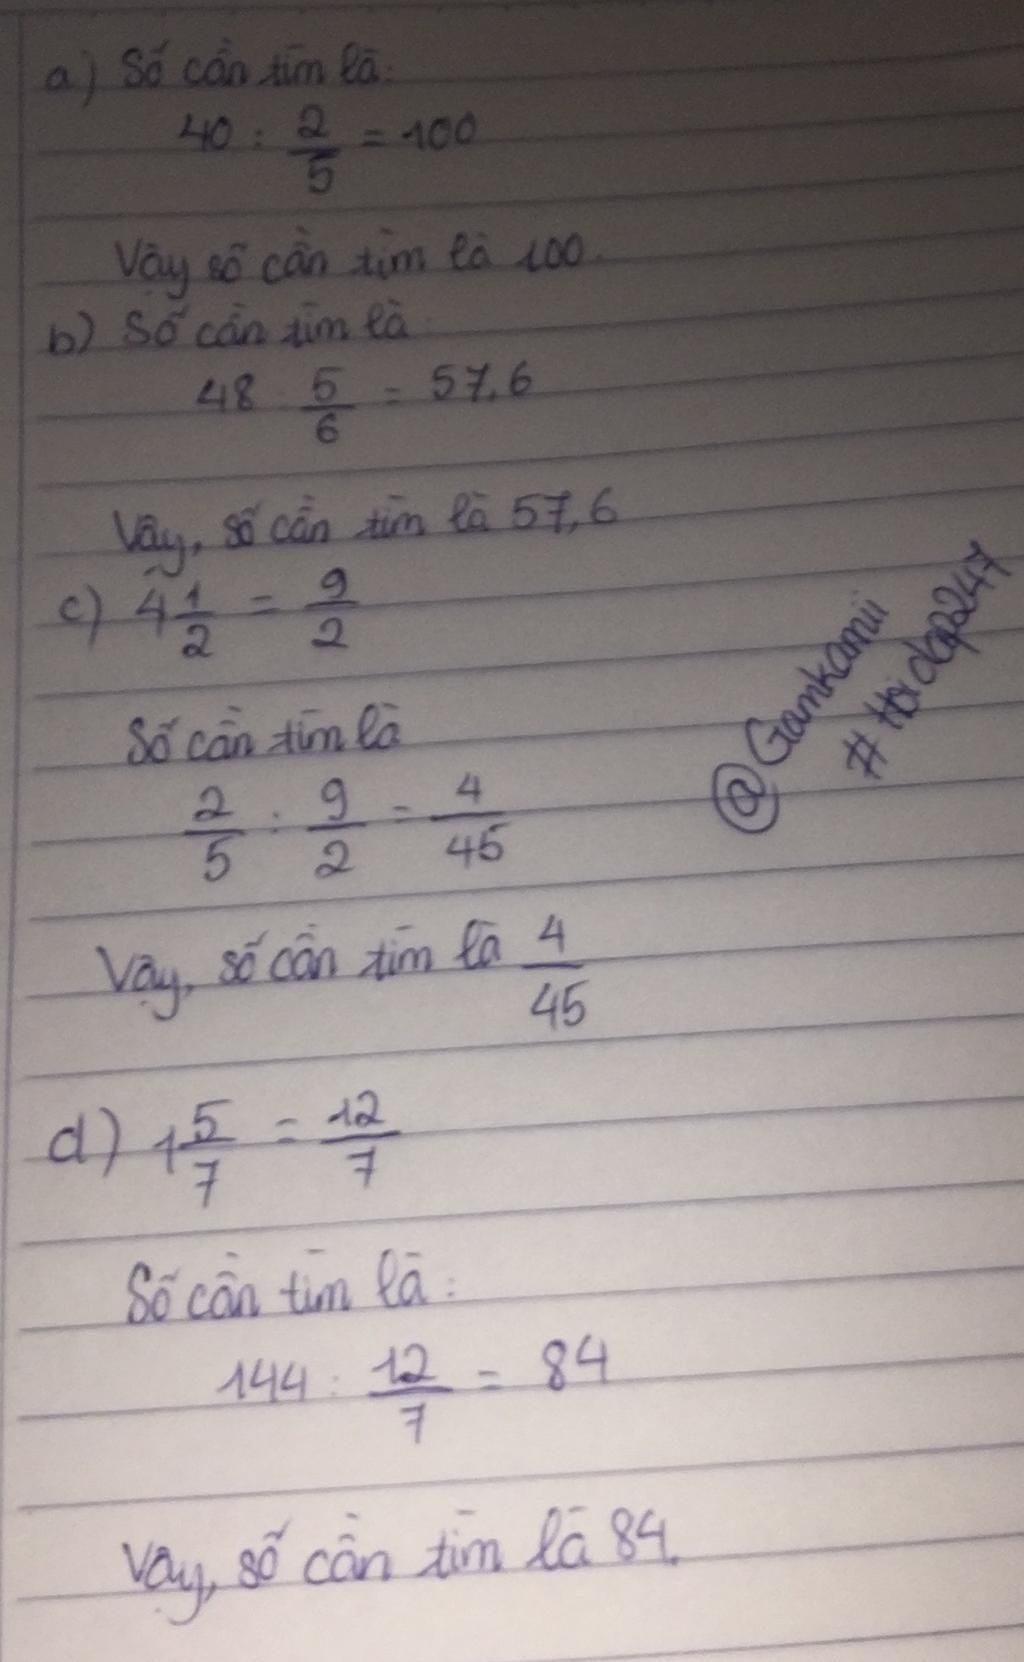 a) Số cần tìm là:
40 : 2/5 = 100
Vậy số cần tìm là 100.
b) Số cần tìm là:
48 : 5/6 = 57,6
Vậy, số cần tìm là 57,6
c) 4 1/2 = 9/2
Số cần tìm là
2/5 : 9/2 = 4/45
Vậy, số cần tìm là 4/45
@Gamkamii
# Hoidap247
d) 1 5/7 = 12/7
Số cần tìm là:
144 : 12/7 = 84
Vậy, số cần tìm là 84.